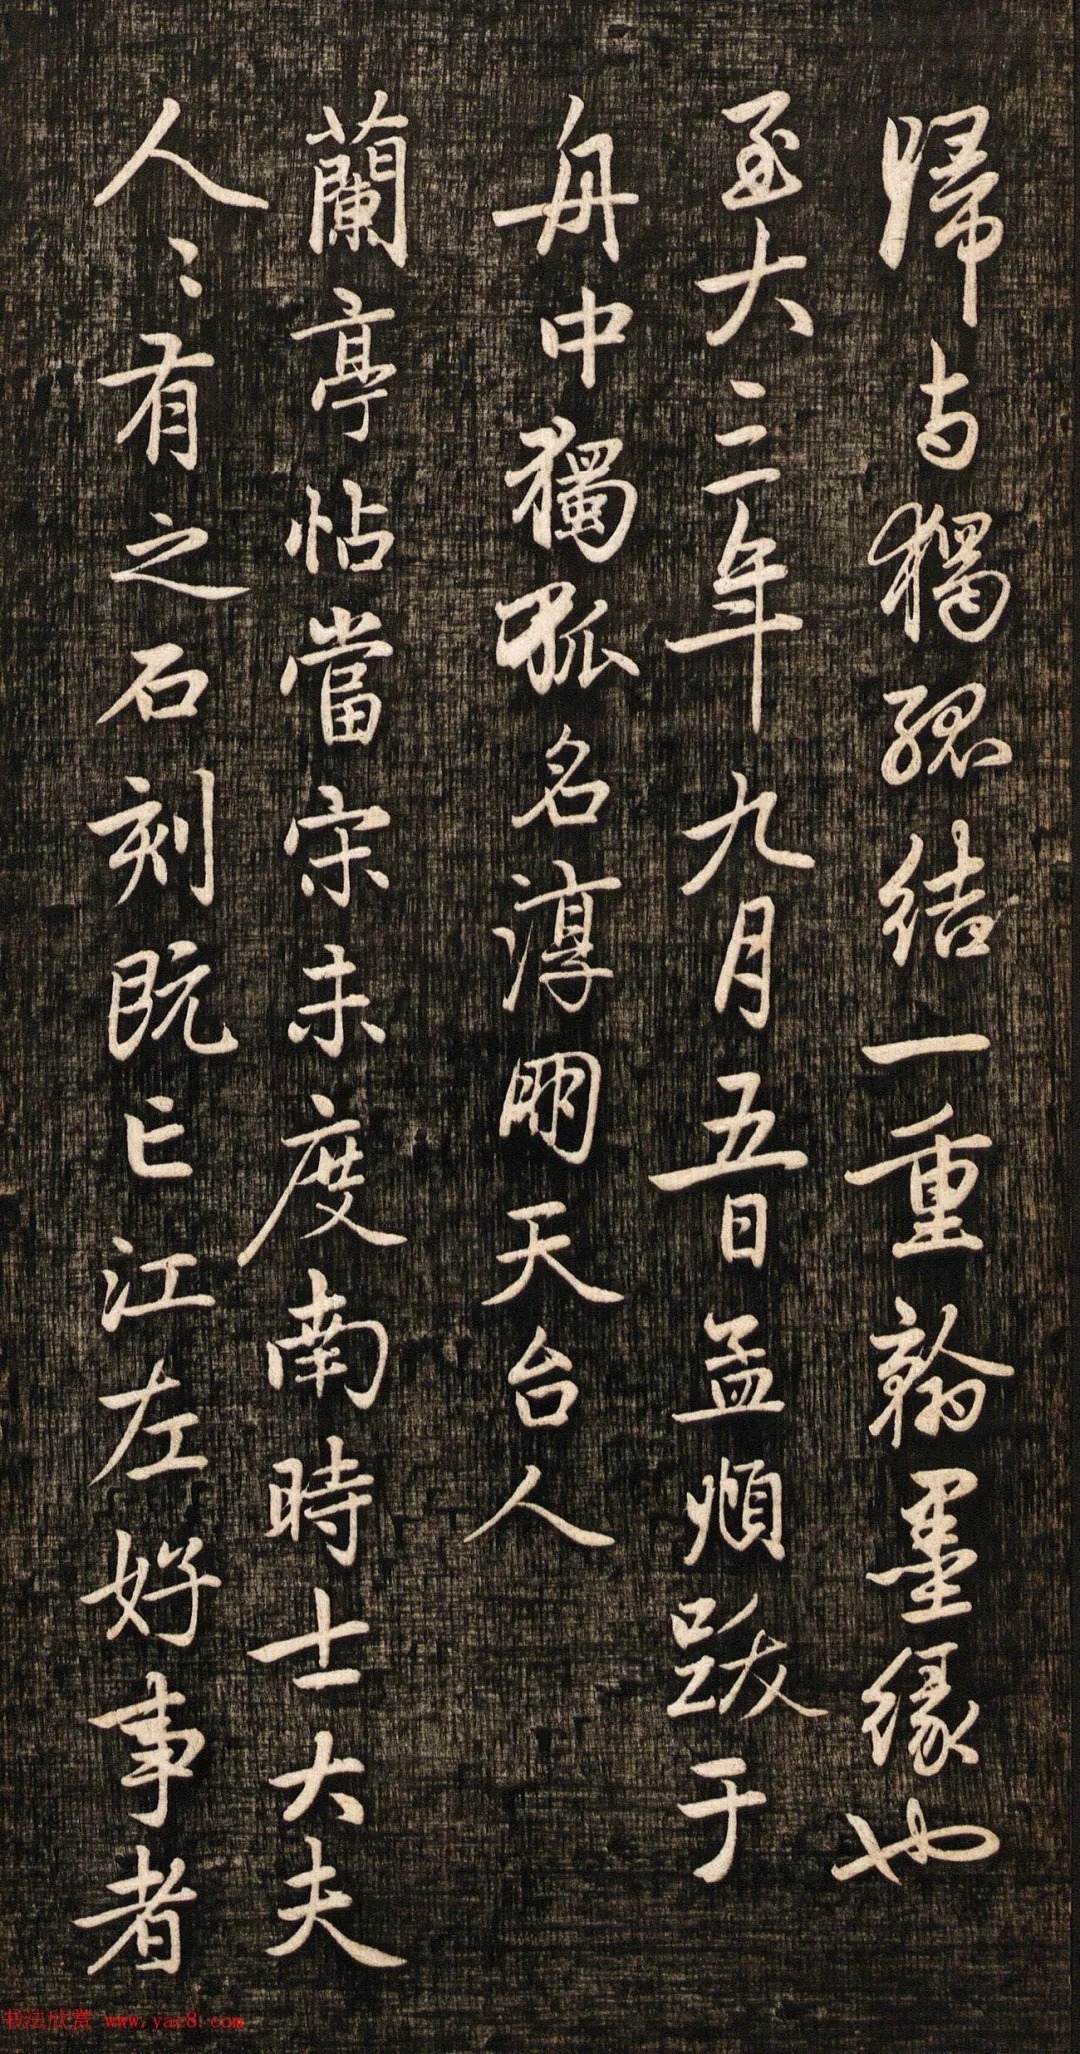 歸與獨孤結一重翰墨緣也
至大三年九月五日孟頫跋于
舟中獨孤名淳朙天台人
蘭亭帖當宋未度南時士大夫
人〻有之石刻既亡江左好事者
书法欣赏 www.yac8.com